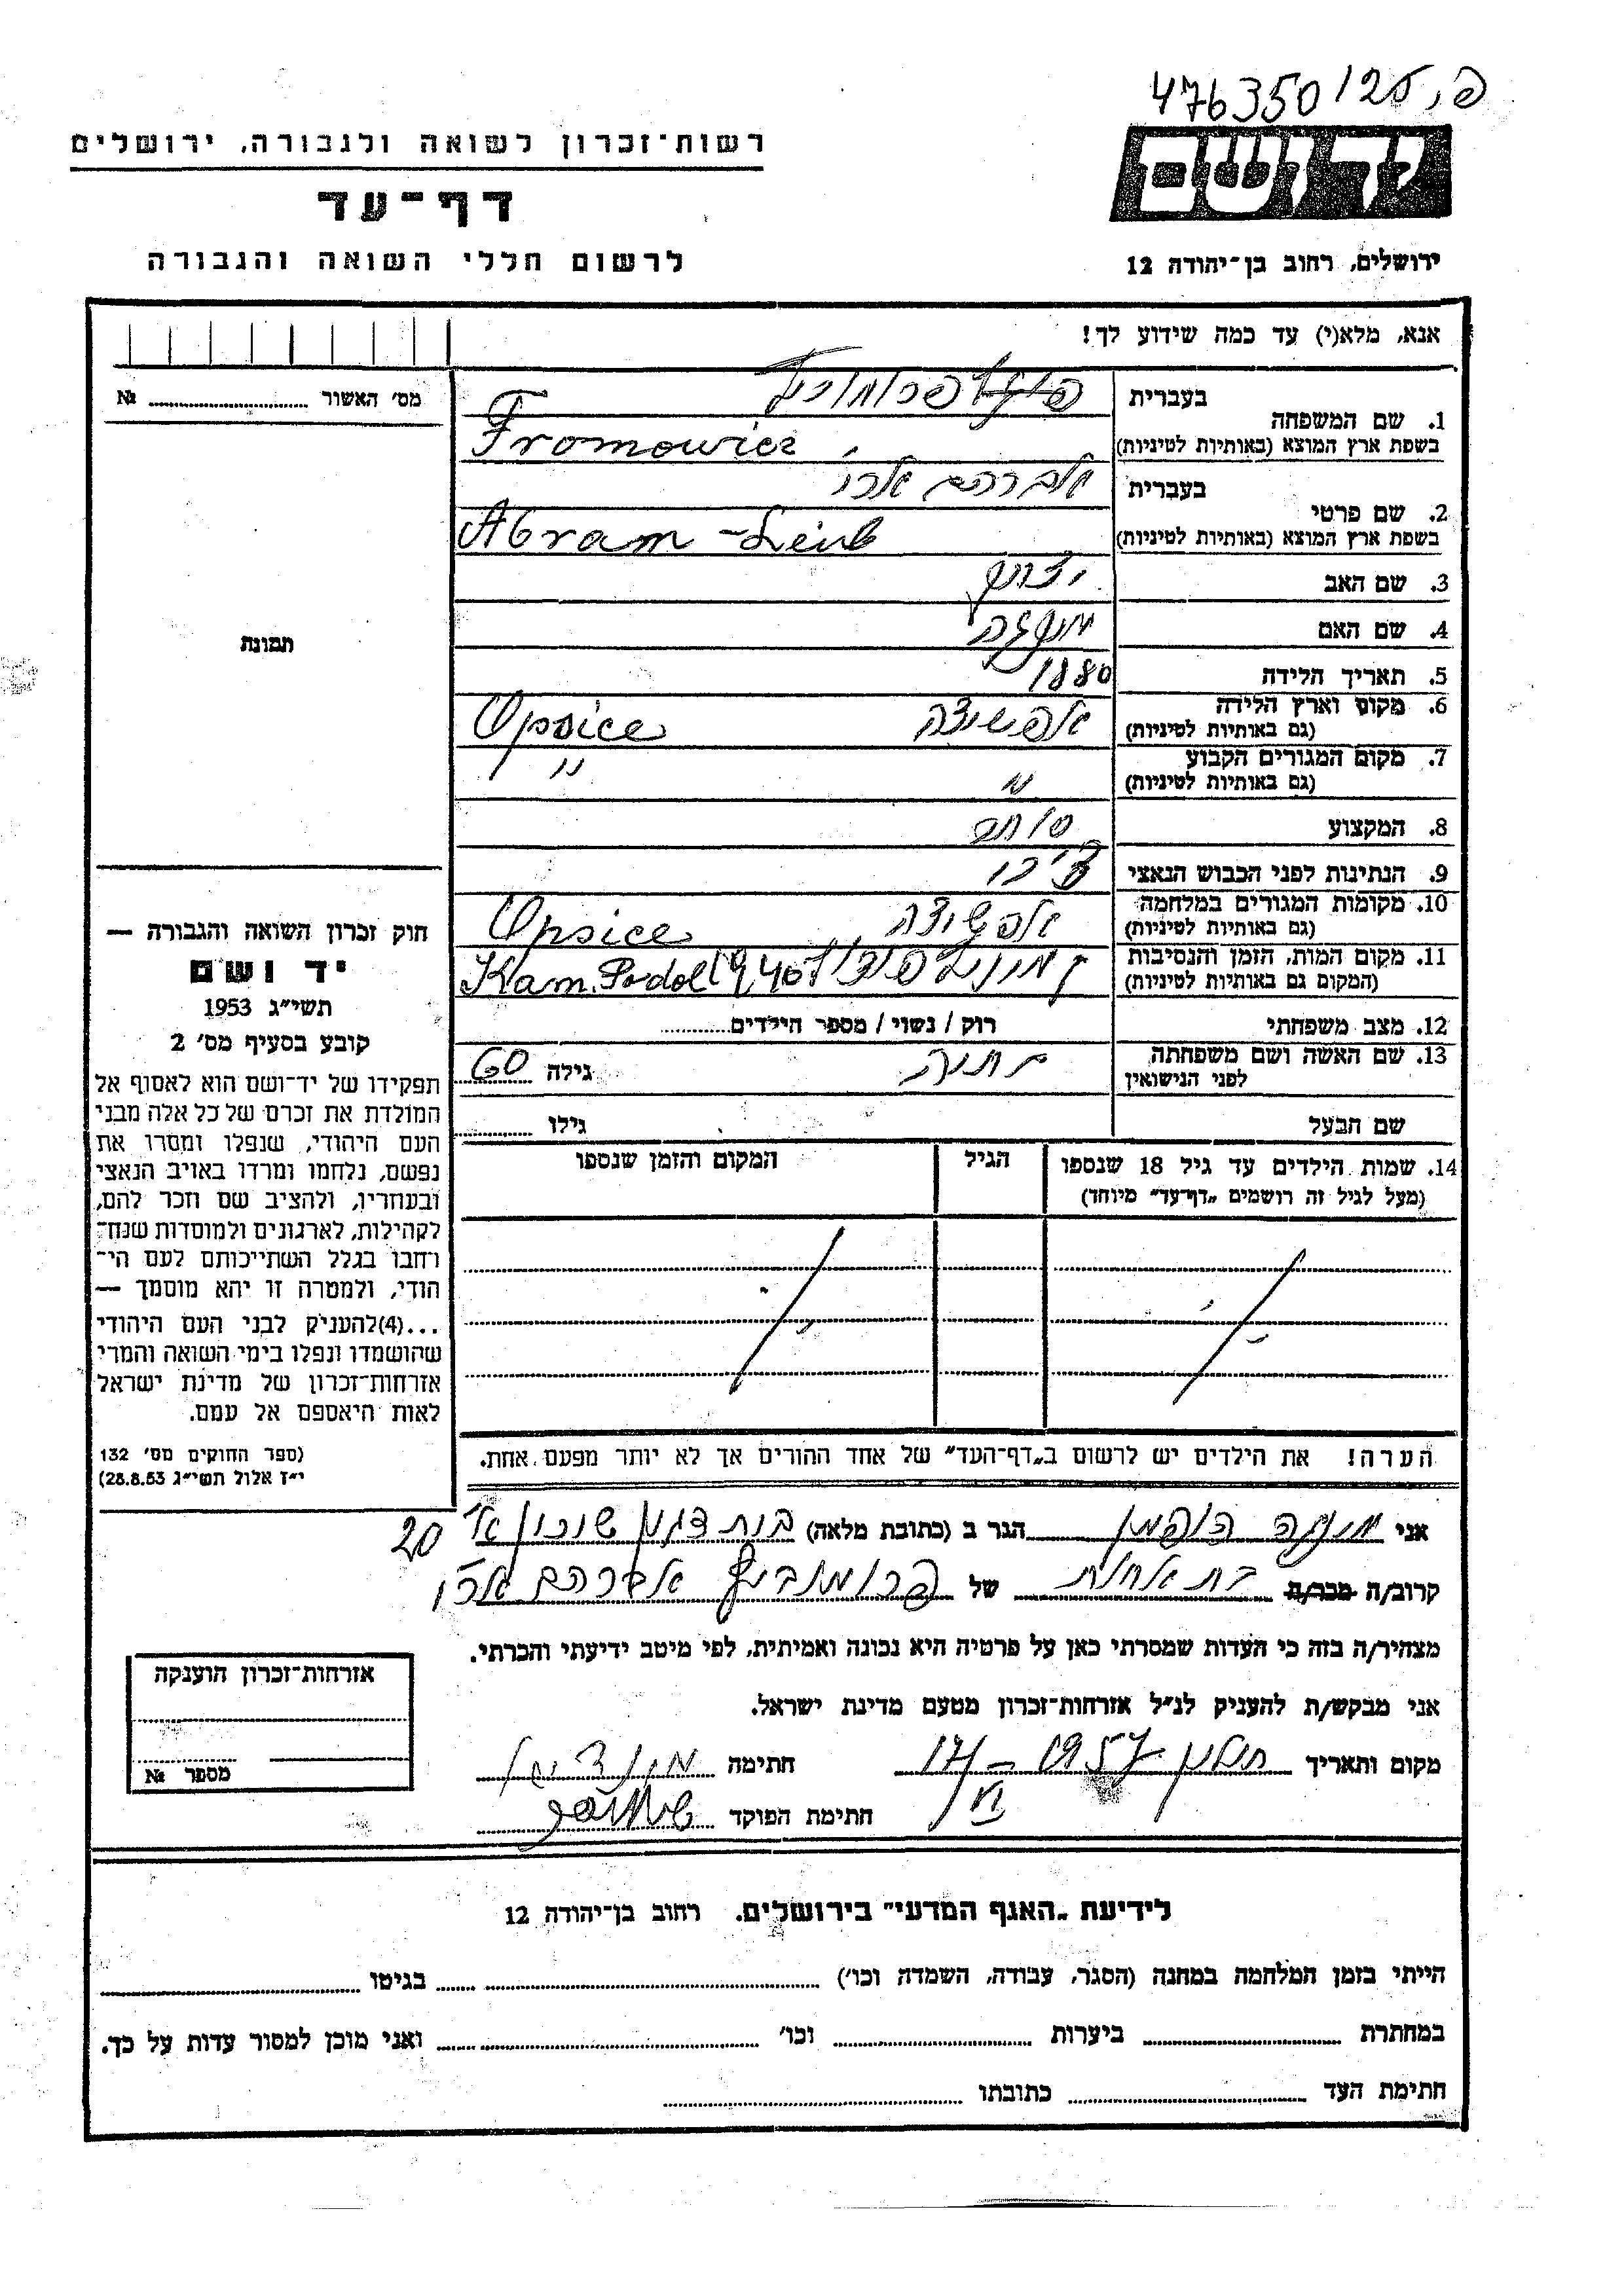 476350/25 ,פ
יד ושם
רשות־זכרון לשואה ולגבורה, ירושלים
דף־עד
לרשום חללי השואה והגבורה
ירושלים, רחוב בן־יהודה 12
אנא, מלא(י) עד כמה שידוע לך!
מס׳ האשור № ............
תמונת
1. שם המשפחה
בעברית פרומוביץ
בשפת ארץ המוצא (באותיות לטיניות) Fromowicz
2. שם פרטי
בעברית אברהם ארי
בשפת ארץ המוצא (באותיות לטיניות) Abram-Leib
3. שם האב יצחק
4. שם האם
5. תאריך הלידה 1880
6. מקום וארץ הלידה
(גם באותיות לטיניות) אפשיצה Opsice
7. מקום המגורים הקבוע
(גם באותיות לטיניות) " "
8. המקצוע סוחר
9. הנתינות לפני הכבוש הנאצי צ'כי
10. מקומות המגורים במלחמה
(גם באותיות לטיניות) אפשיצה Opsice
11. מקום המות, הזמן והנסיבות
(המקום גם באותיות לטיניות) קמיניץ פודו' Kam. Podol 1940
12. מצב משפחתי רוק / נשוי / מספר הילדים............
13. שם האשה ושם משפחתה
לפני הנישואין גילה 60
שם הבעל גילו ............
14. שמות הילדים עד גיל 18 שנספו
(מעל לגיל זה רושמים „דף־עד” מיוחד)
הגיל
המקום והזמן שנספו
חוק זכרון השואה והגבורה —
יד ושם
תשי״ג 1953
קובע בסעיף מס׳ 2
תפקידו של יד־ושם הוא לאסוף אל
המולדת את זכרם של כל אלה מבני
העם היהודי, שנפלו ומסרו את
נפשם, נלחמו ומרדו באויב הנאצי
ובעוזריו, ולהציב שם וזכר להם,
לקהילות, לארגונים ולמוסדות שנח־
רחבו בגלל השתייכותם לעם הי־
הודי, ולמטרה זו יהא מוסמך —
...(4)להעניק לבני העם היהודי
שהושמדו ונפלו בימי השואה והמרי
אזרחות־זכרון של מדינת ישראל
לאות היאספם אל עמם.
(ספר החוקים מס׳ 132
י״ז אלול תשי״ג 28.8.53)
הערה! את הילדים יש לרשום ב„דף־העד” של אחד ההורים אך לא יותר מפעם אחת.
אני הופמן הגר ב (כתובת מלאה) בית דגן שיכון א' 20
קרוב/ה מכר/ה בת אחות של פרומוביץ אברהם ארי
מצהיר/ה בזה כי העדות שמסרתי כאן על פרטיה היא נכונה ואמיתית, לפי מיטב ידיעתי והכרתי.
אני מבקש/ת להעניק לנ״ל אזרחות־זכרון מטעם מדינת ישראל.
מקום ותאריך 1957 חתימה
חתימת הפוקד
אזרחות־זכרון הוענקה
מספר №
לידיעת „האגף המדעי” בירושלים. רחוב בן־יהודה 12
הייתי בזמן המלחמה במחנה (הסגר, עבודה, השמדה וכו׳) ............ בגיטו ............
במחתרת ............ ביערות ............ וכו׳ ............ ואני מוכן למסור עדות על כך.
חתימת העד ............ כתובתו ............